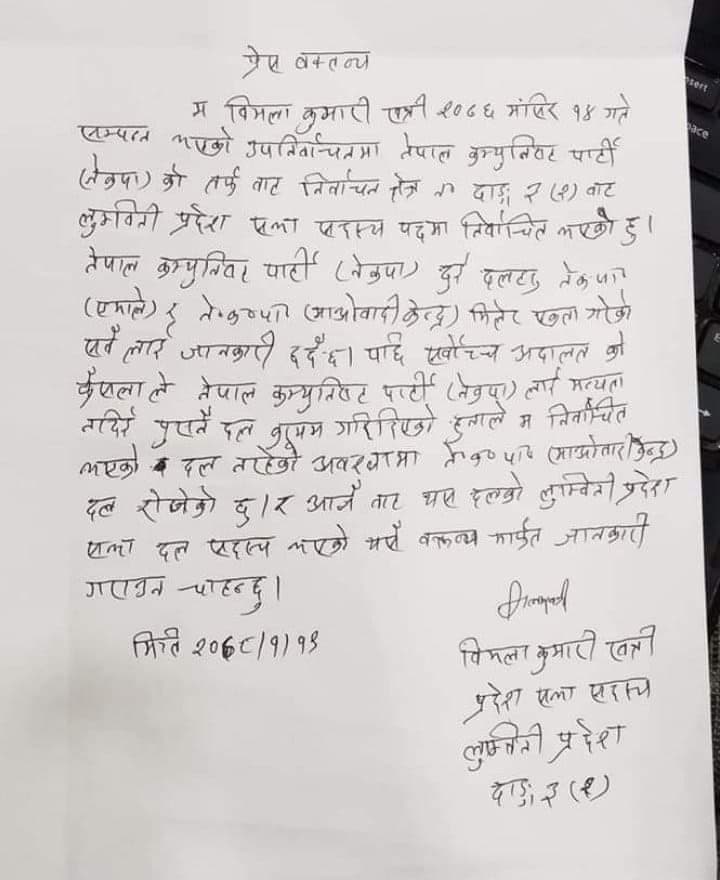 प्रेस वक्तव्य
म विमला कुमारी खत्री २०७६ मंसिर १४ गते
सम्पन्न भएको उपनिर्वाचनमा नेपाल कम्युनिष्ट पार्टी
(नेकपा) को तर्फ बाट निर्वाचन क्षेत्र नं दाङ ३ (२) बाट
लुम्विनी प्रदेश सभा सदस्य पदमा निर्वाचित भएको हु।
नेपाल कम्युनिष्ट पार्टी (नेकपा) दुई दलहरु ने.क.पा
(एमाले) र ने.क.पा (माओवादी केन्द्र) मिलेर एकता गरेको
सवै लाई जानकारी हुदैछ। पछि सर्वोच्च अदालत को
फैसला ले नेपाल कम्युनिष्ट पार्टी (नेकपा) लाई मन्यता
नदिई पुरानै दल कायम गरिदिएको हुनाले म निर्वाचित
भएको दल नरहेको अवस्थामा ने.क.पा (माओवादी केन्द्र)
दल रोजेको छु। र आजै बाट यस दलको लुम्विनी प्रदेश
सभा दल सदस्य भएको यसै वक्तव्य मार्फत जानकारी
गराउन चाहन्छु।
मिति २०७८/१/१३
विमला कुमारी खत्री
प्रदेश सभा सदस्य
लुम्विनी प्रदेश
दाङ ३ (२)